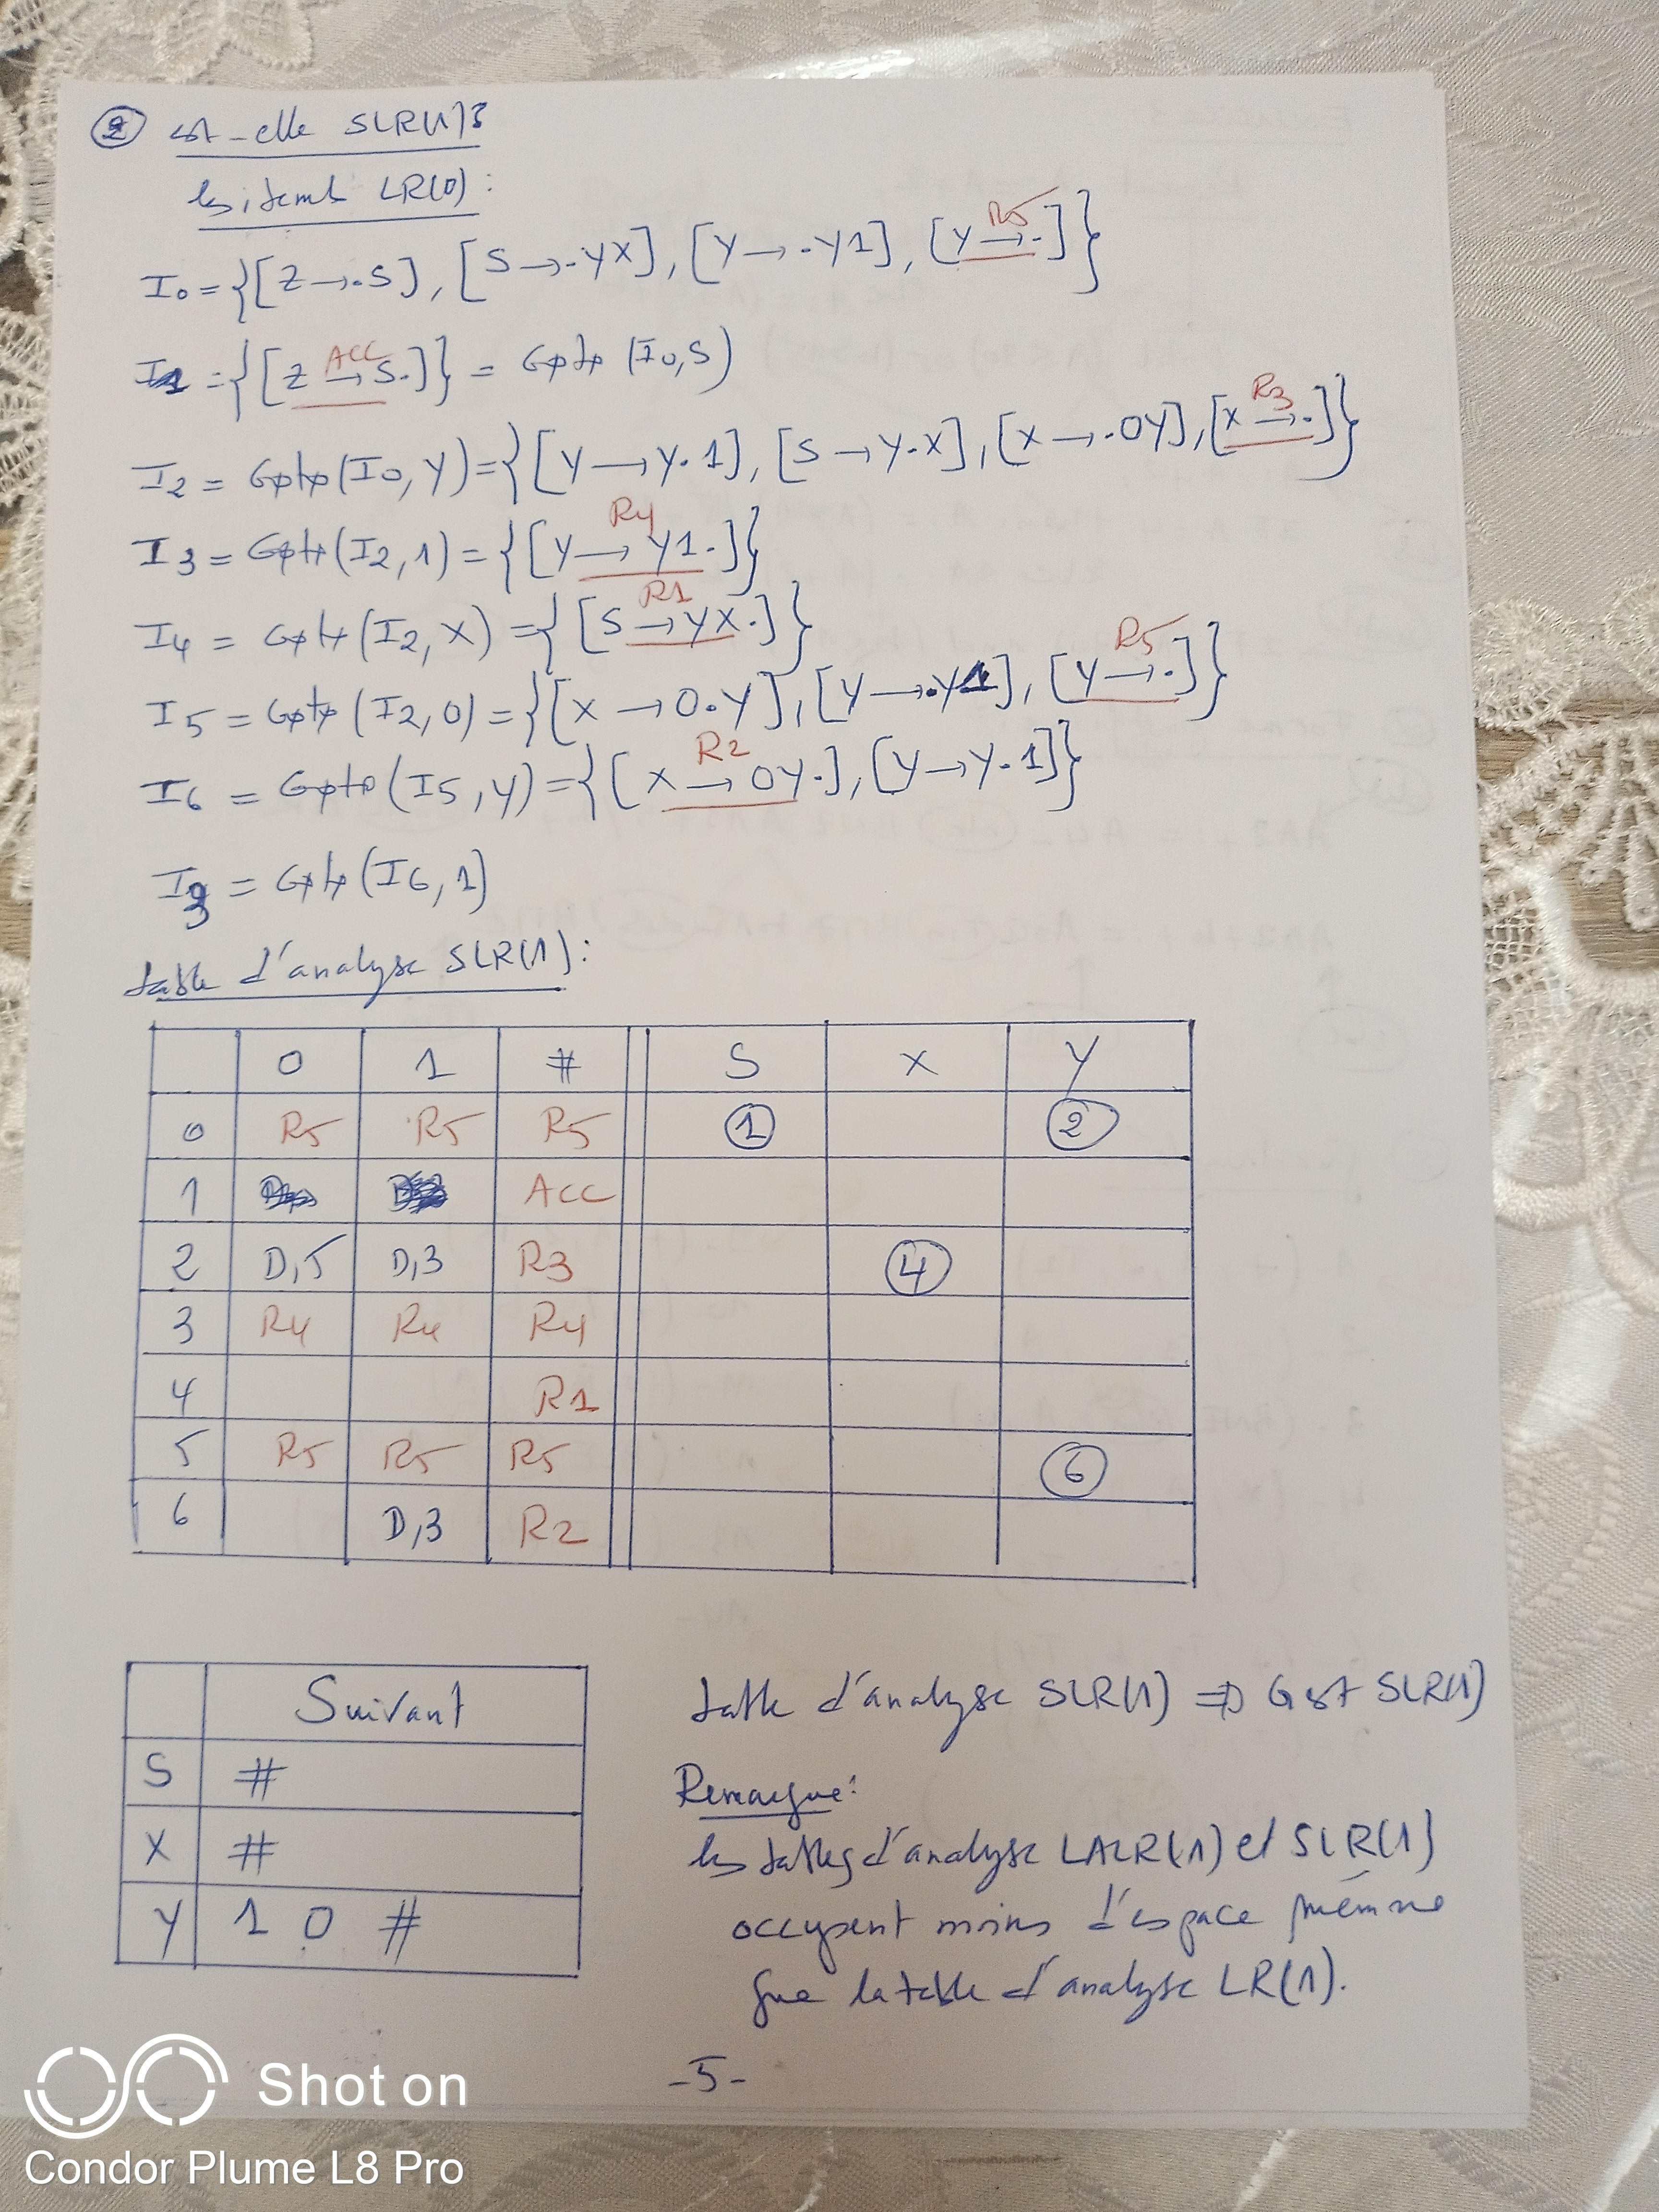 ② est-elle SLR(1)?
les items LR(0) :
I0 = {[Z → .S], [S → .YX], [Y → .Y1], [Y → .]} R5
I1 = {[Z → S.]} = Goto (I0,S) ACC
I2 = Goto (I0, Y) = {[Y → Y.1], [S → Y.X], [X → .0Y], [X → .]} R3
I3 = Goto (I2, 1) = {[Y → Y1.]} R4
I4 = Goto (I2, X) = {[S → YX.]} R1
I5 = Goto (I2, 0) = {[X → 0.Y], [Y → .Y1], [Y → .]} R5
I6 = Goto (I5, Y) = {[X → 0Y.], [Y → Y.1]} R2
I3 = Goto (I6, 1)
table d'analyse SLR(1) :
0 1 # S X Y
0 R5 R5 R5 ① ②
1 ACC
2 D,5 D,3 R3 ④
3 R4 R4 R4
4 R1
5 R5 R5 R5 ⑥
6 D,3 R2
Suivant
S #
X #
Y 1 0 #
table d'analyse SLR(1) ⇒ G est SLR(1)
Remarque :
les tables d'analyse LALR(1) et SLR(1)
occupent moins d'espace mémoire
que la table d'analyse LR(1).
-5-
Shot on
Condor Plume L8 Pro